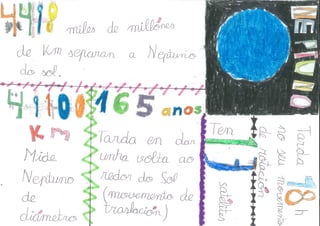 4498 miles de millóns
de Km separan a Neptuno
do sol.
NEPTUNO
49100
Km
Mide
Neptuno
de
diámetro
165 anos
Tarda en dar
unha volta ao
redor do Sol
(movemento de
traslación)
Ten
satélites
Tarda
h
no seu movemento
de rotación